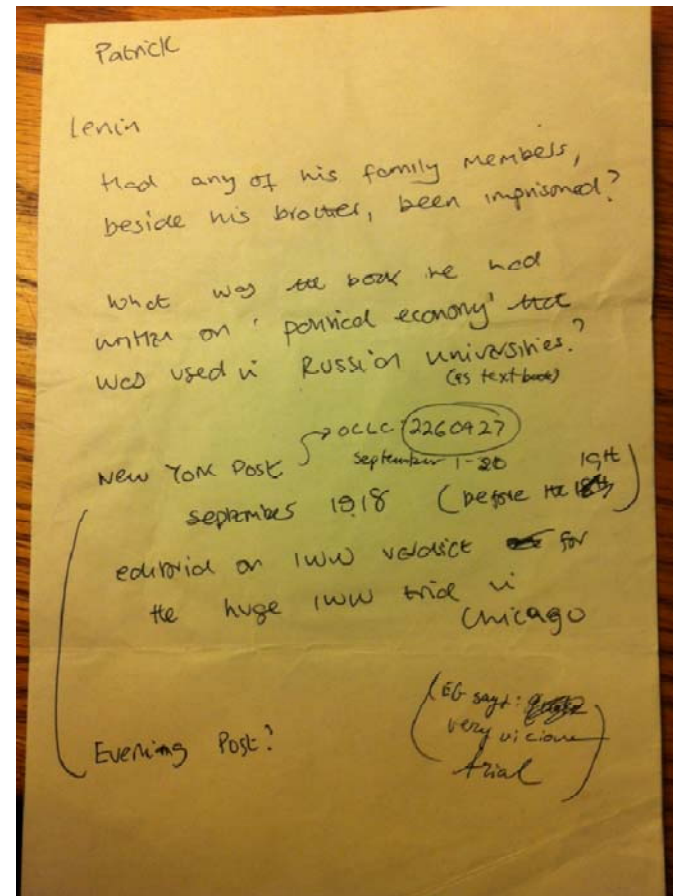 Patrick
Lenin
Had any of his family members,
beside his brother, been imprisoned?
What was the book he had
written on 'political economy' that
was used in Russian universities?
(as text book)
OCLC: 2260427
New York Post September 1-20
September 1918 (before the 19th)
editorial on IWW verdict for
the huge IWW trial in
Chicago
(EG says:
very vicious
Evening Post? trial)